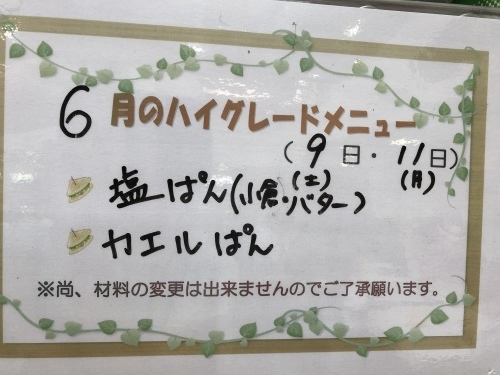 6月のハイグレードメニュー
(9日・11日)
(土) (月)
塩ぱん(小倉・バター)
カエルぱん
※尚、材料の変更は出来ませんのでご了承願います。